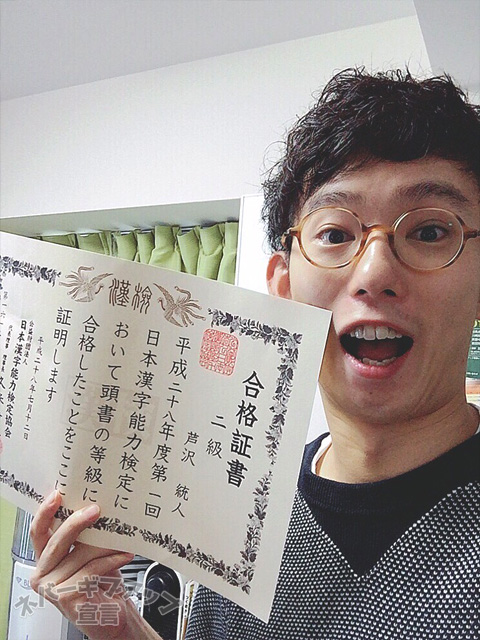 漢検
合格証書
二級
芦沢 統人
平成二十八年度第一回
日本漢字能力検定に
おいて頭書の等級に
合格したことをここに
証明します
平成二十八年七月十二日
公益財団法人
日本漢字能力検定協会
ネバーギブアップ
宣言